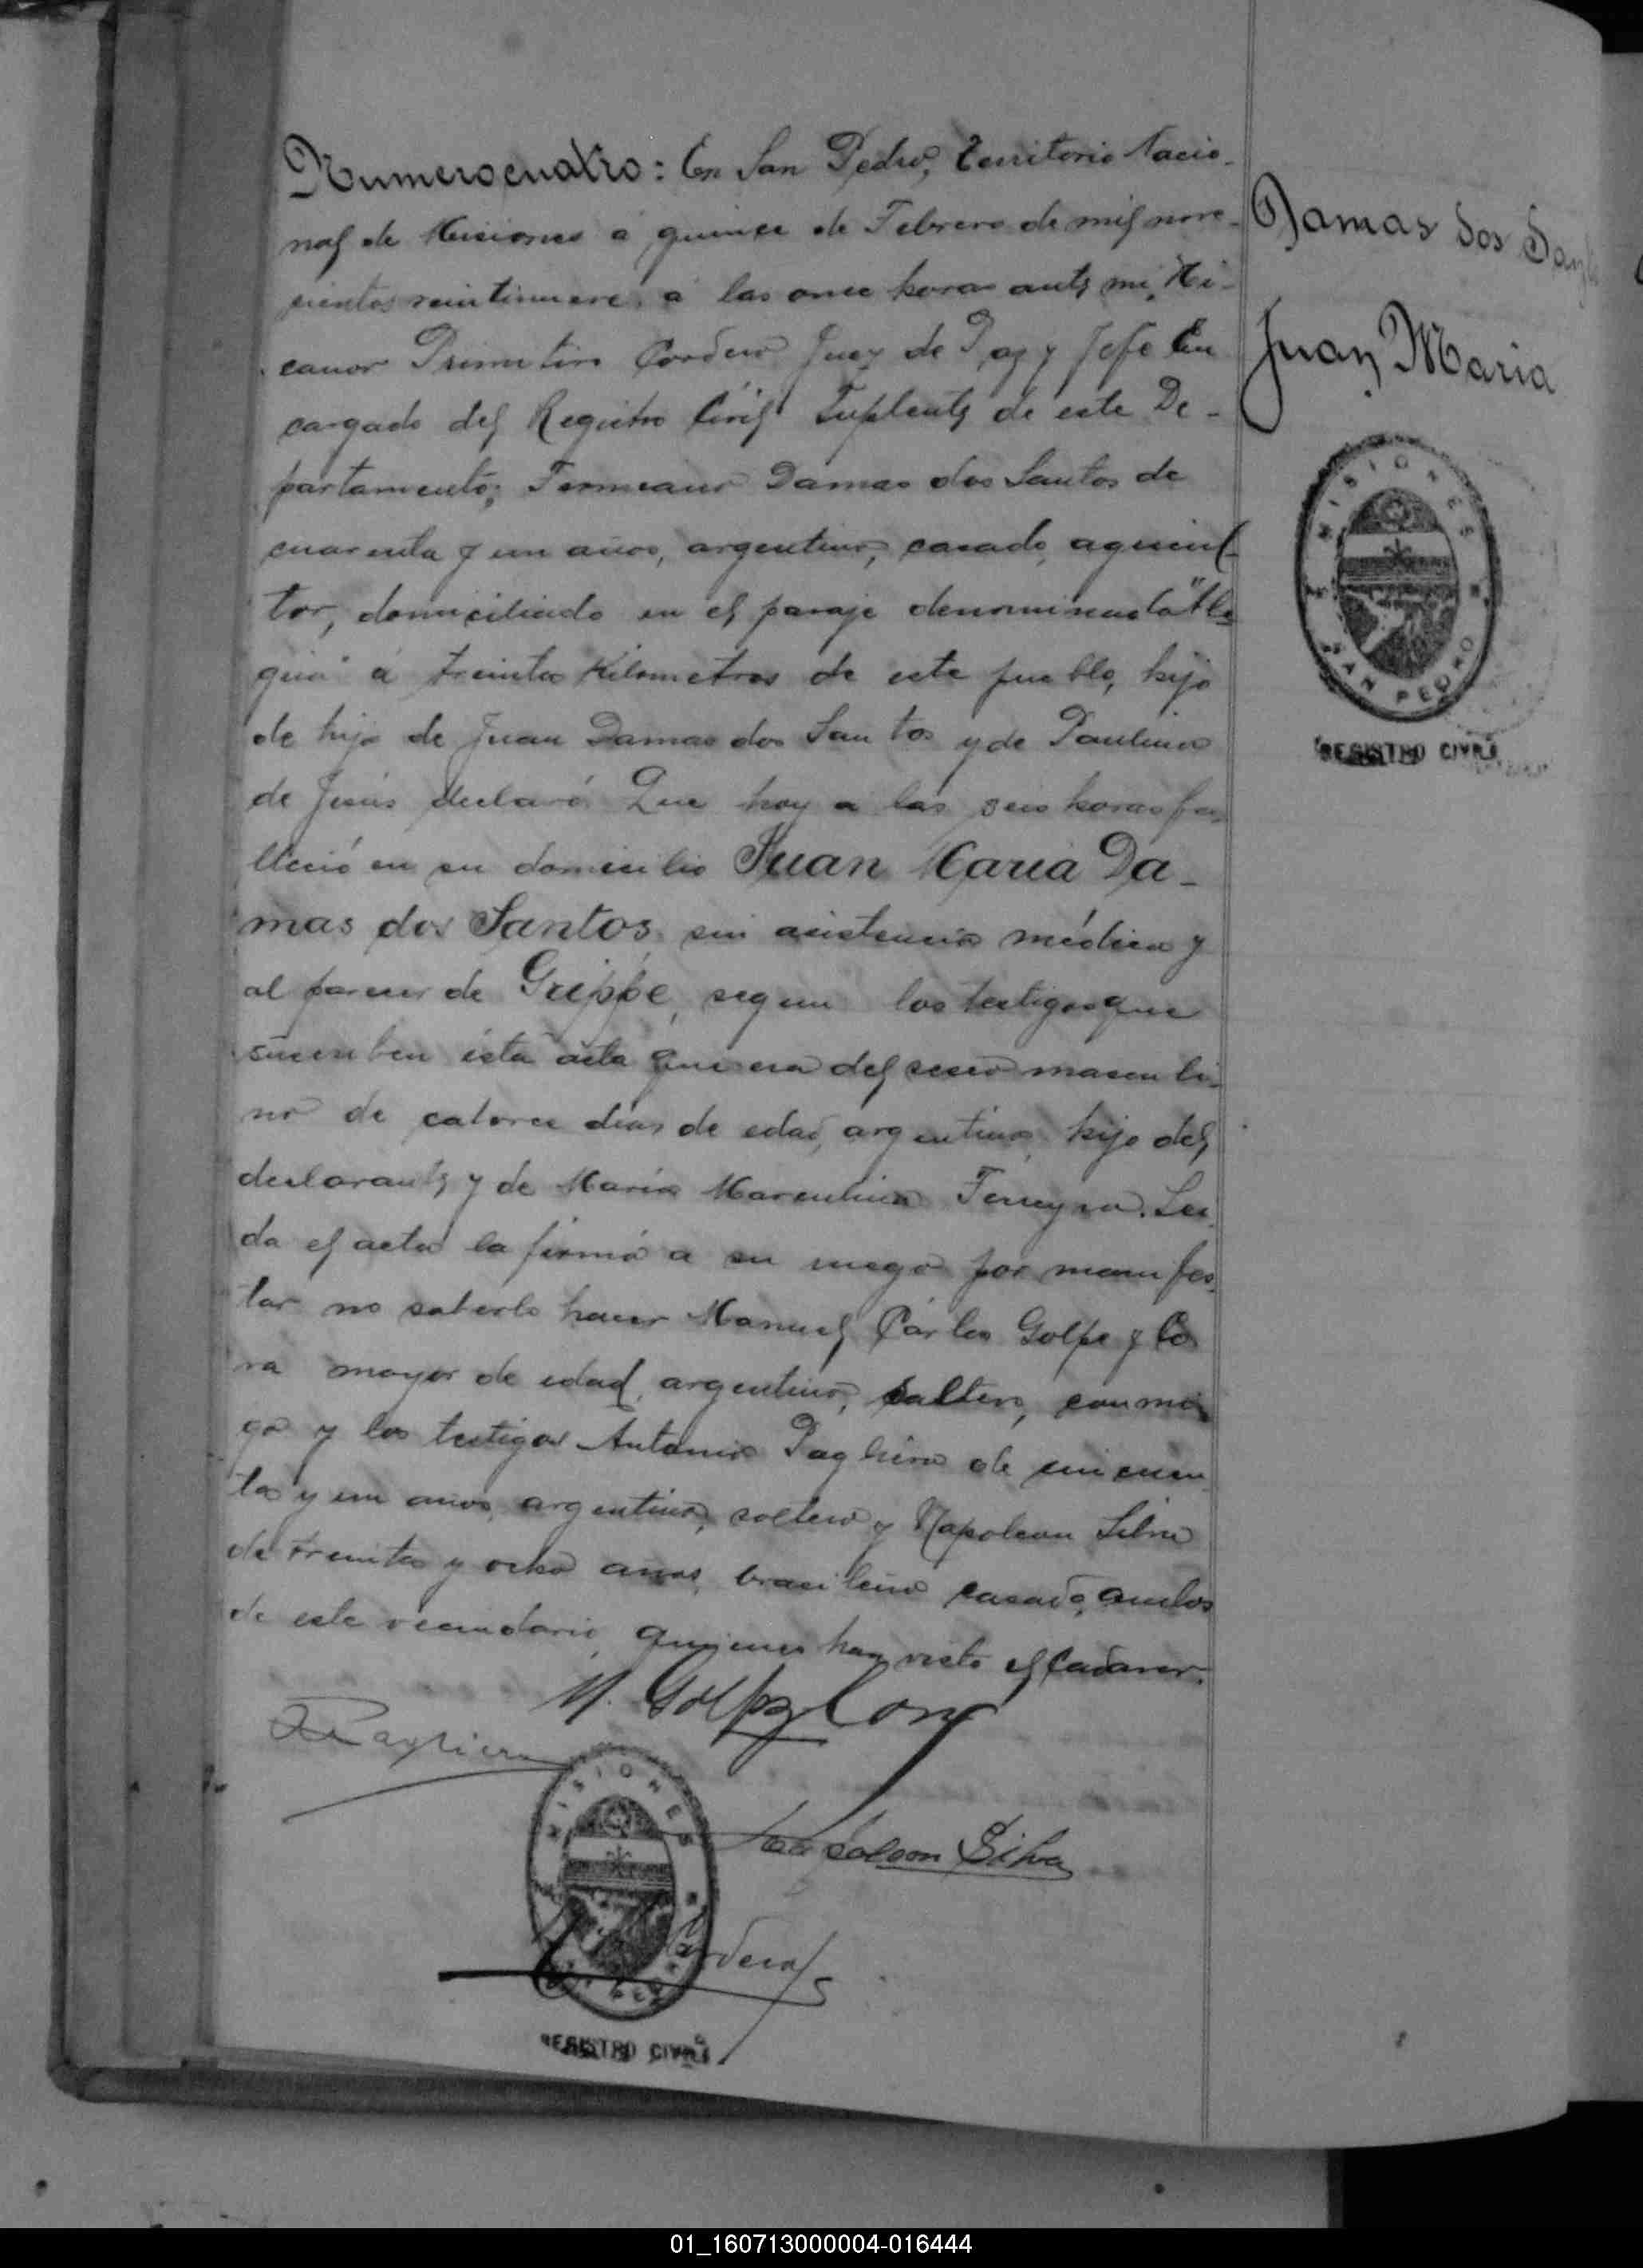 Numero cuatro: En San Pedro, Territorio Nacio-
nal de Misiones a quince de Febrero de mil nove-
cientos veintinueve, a las once horas ante mi, Ni-
canor Primitivo Cordero Juez de Paz y Jefe En
cargado del Registro Civil Suplente de este De-
partamento; Firmiano Damas dos Santos de
cuarenta y un años, argentino, casado, agricul-
tor, domiciliado en el paraje denominado "Ale
gria" á treinta Kilometros de este pueblo, hijo
de hijo de Juan Damas dos Santos y de Paulina
de Jesús declaró: Que hoy a las seis horas fa-
lleció en su domicilio Juan Maria Da-
mas dos Santos, sin asistencia médica y
al parecer de Grippe, segun los testigos que
suscriben ésta acta que era del sexo masculi-
no de catorce dias de edad, argentino, hijo del
declarante y de Maria Marculina Ferreyra. Lei-
da el acta la firmó a su ruego por manifes-
tar no saberlo hacer Manuel Cárlos Golpe y Co
ra mayor de edad, argentino, soltero, conmi-
go y los testigos Antonio Pagliera de cincuen
ta y un años, argentino, soltero y Napoleon Silva
de treinta y ocho años, brasileño casado, ambos
de este vecindario, quienes han visto el Cadaver.
M. Golpe y Cora
A Pagliera
MISIONES
Napoleon Silva
Cordero
REGISTRO CIVIL
Damas dos Santos
Juan Maria
MISIONES
SAN PEDRO
REGISTRO CIVIL
01_160713000004-016444